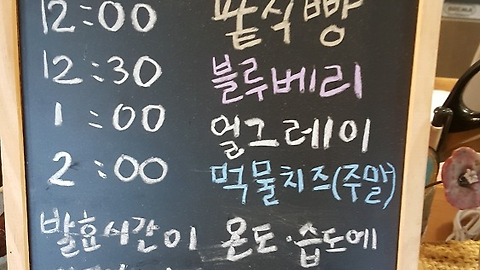 12:00 팥식빵
12:30 블루베리
1:00 얼그레이
2:00 먹물치즈(주말)
발효시간이 온도·습도에